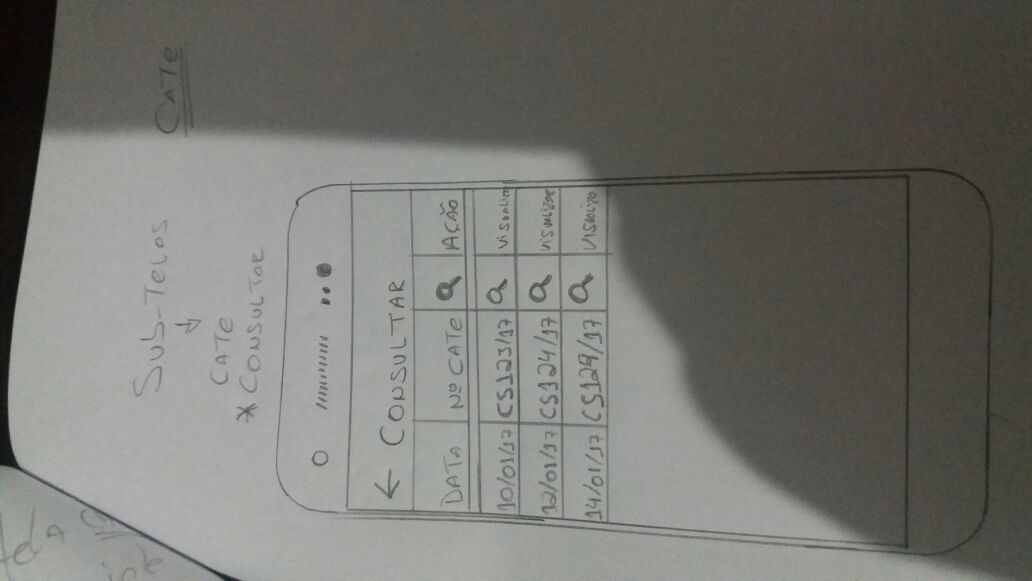 Sub-Telas
CATe
CATe
* CONSULTAR
← CONSULTAR
DATA Nº CATe AÇÃO
10/01/17 CS123/17 Visualizar
12/01/17 CS124/17 Visualizar
14/01/17 CS129/17 Visualiza